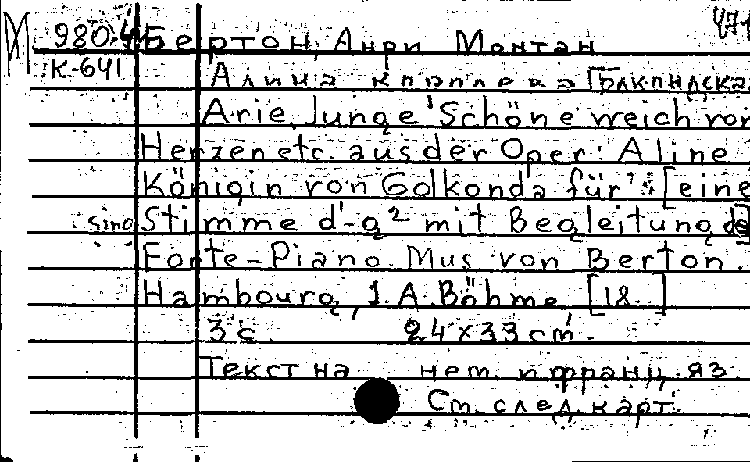 980.4 Бертон, Анри Монтан 471
К-641 Алина королева Голкондска
Arie Junge Schöne weich von
Herzen etc. aus der Oper: Aline
Königin von Golkonda für's [eine
sing Stimme d'-g² mit Begleitung de]
Forte-Piano. Mus von Berton.
Hambourg, J. A. Böhme [18 ]
3 с. 24x33 cm.
Текст на нем. и франц. яз.
См. след. карт.